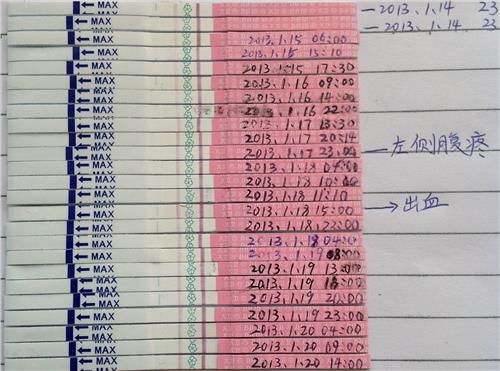 MAX 2013.1.14 23
MAX 2013.1.14 23
MAX 2013.1.15 06:00
MAX 2013.1.15 15:10
MAX 2013.1.15 17:30
MAX 2013.1.16 09:00
MAX 2013.1.16 14:00
MAX 1.16 22:00
MAX 2013.1.17 13:30
MAX 2013.1.17 20:14
MAX 2013.1.17 23:00 左侧腹疼
MAX 2013.1.18
MAX 2013.1.18 10:00
MAX 2013.1.18 11:10
MAX 2013.1.18 15:00 → 出血
MAX 2013.1.18 23:00
MAX 2013.1.18 04:00
MAX 2013.1.19 08:00
MAX 2013.1.19 13:00
MAX 2013.1.19
MAX 2013.1.19 20:00
MAX 2013.1.19 23:00
MAX 2013.1.20 04:00
MAX 2013.1.20 09:00
MAX 2013.1.20 14:00